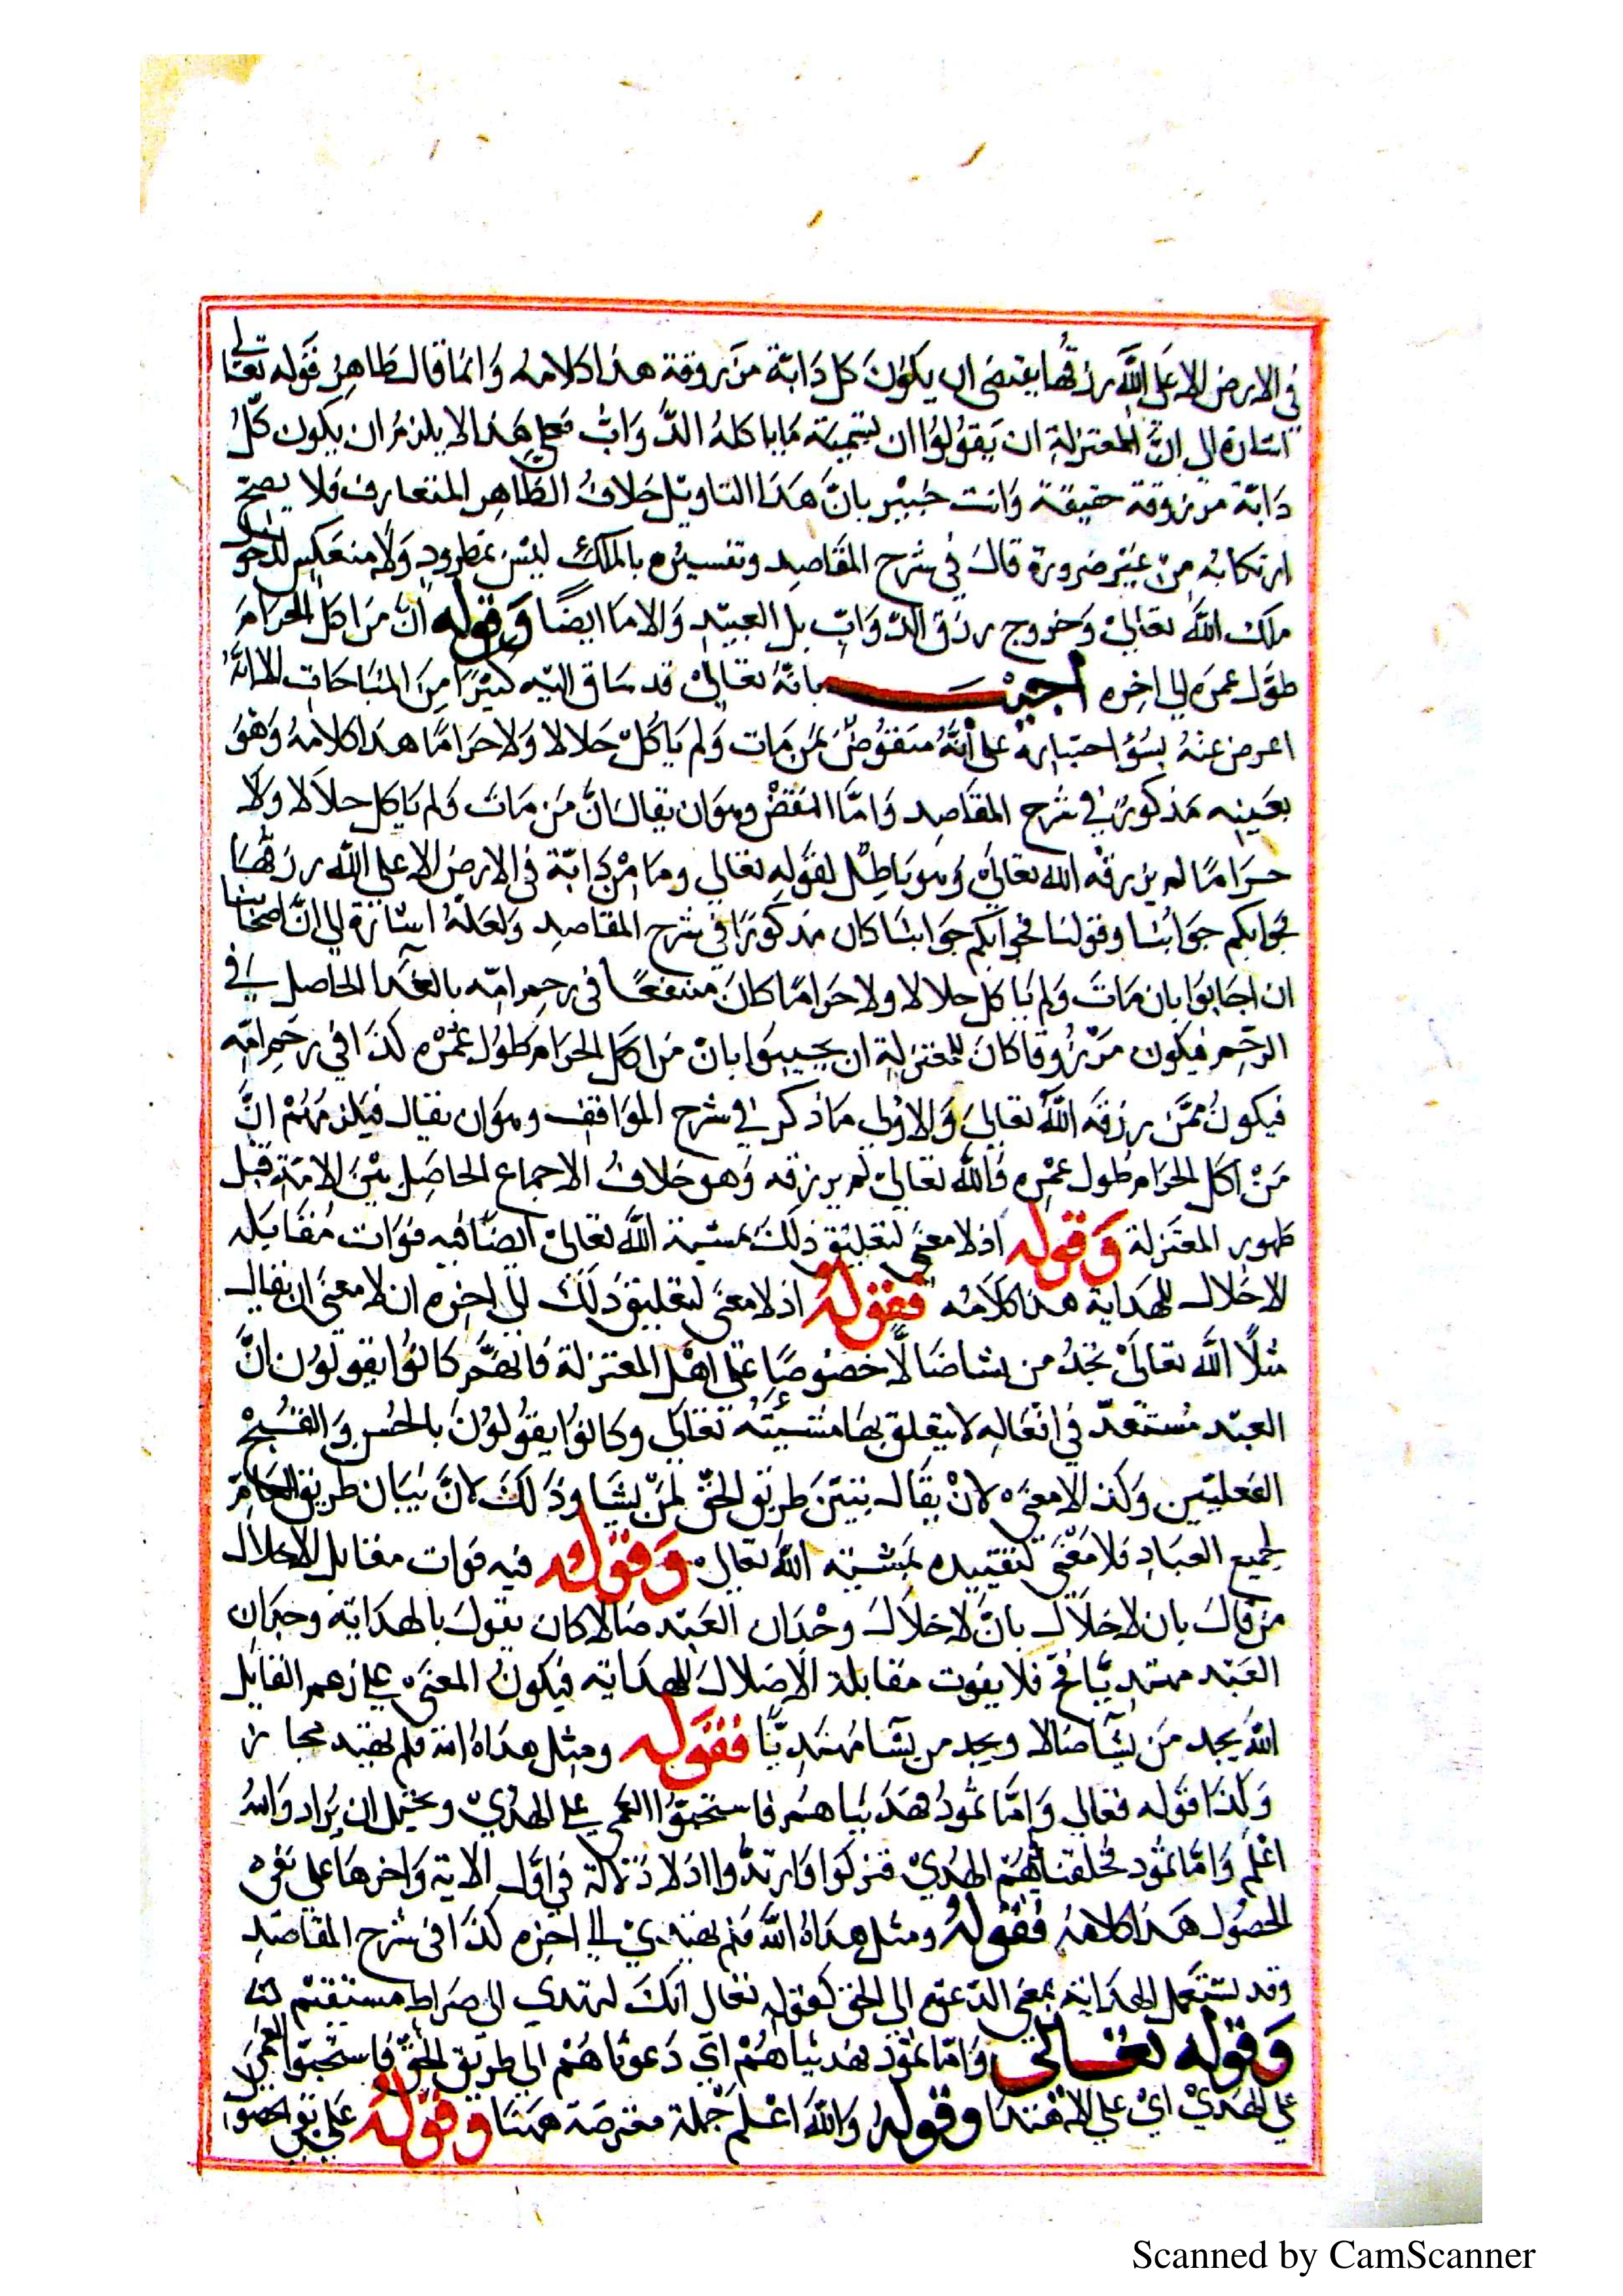 في الارض الا على الله رزقها يقتضى ان يكون كل دابة مرزوقة هذا كلامه وانما قال ظاهر قوله تعالى
اشارة الى ان للمعتزلة ان يقولوا ان تسمية ما ياكله الدواب فعلى هذا لا يلزم ان يكون كل
دابة مرزوقة حقيقة وانت خبير بان هذا التاويل خلاف الظاهر المتعارف فلا يصح
ارتكابه من غير ضرورة قال في شرح المقاصد وتفسيره بالملك ليس بمطرود ولا منعكس لدخول
ملك الله تعالى وخروج رزق الدواب بل العبيد والاما ايضا وقوله ان من اكل الحرام
طول عمره الى اخره اجيب بانه تعالى قد ساق اليه كثيرا من المباحات الا انه
اعرض عنه بسؤ اختياره على انه منقوض بمن مات ولم ياكل حلالا ولا حراما هذا كلامه وهو
بعينه مذكور في شرح المقاصد واما النقض وهو ان يقال ان من مات ولم ياكل حلالا ولا
حراما لم يرزقه الله تعالى وهو باطل لقوله تعالى وما من دابة في الارض الا على الله رزقها
فجوابكم جوابنا وقولنا فجوابكم جوابنا كان مذكورا في شرح المقاصد ولعله اشارة الى ان اصحابنا
ان اجابوا بان مات ولم ياكل حلالا ولا حراما كان منتفعا في رحم امه بالغدا الحاصل في
الرحم فيكون مرزوقا كان للمعتزلة ان يجيبوا بان من اكل الحرام طول عمره كذا في رحم امه
فيكون ممن رزقه الله تعالى والاولى ما ذكر في شرح المواقف وهو ان يقال فيلزمهم ان
من اكل الحرام طول عمره فالله تعالى لم يرزقه وهو خلاف الاجماع الحاصل بين الامة قبل
ظهور المعتزلة وقوله اذ لا معنى لتعليق ذلك بمشية الله تعالى ايضا فيه فوات مقابلة
الاخلال للهداية هذا كلامه فقوله اذ لا معنى لتعليق ذلك الى اخره ان لا معنى ان يقال
مثلا الله تعالى نجد من يشا ضالا خصوصا على اهل المعتزلة فانهم كانوا يقولون ان
العبد مستعد في افعاله لا يتعلق بها مشيئته تعالى وكانوا يقولون بالحسن والقبح
العقليين وكذا لا معنى لان يقال نبين طريق الحق لمن يشا وذلك لان بيان طريق الحق عام
لجميع العباد فلا معنى لتقييده بمشية الله تعالى وقوله فيه فوات مقابل الاخلال
من قال بان لاخلال بان لاخلال وجدان العبد ضالا كان يقول بالهداية وجدان
العبد مهتديا فح فلا يفوت مقابلة الاضلال للهداية فيكون المعنى على زعم القايل
الله يجد من يشا ضالا ويجد من يشا مهتديا فقوله ومثل هداه الله فلم يهتد مجاز
وكذا قوله تعالى واما ثمود فهديناهم فاستحبوا العمى على الهدى ويحتمل ان يراد والله
اعلم واما ثمود فخلقنا فيهم الهدى فتركوا وارتدوا اذ لا دلالة في اول الاية واخرها على نفى
الحصول هذا كلامه فقوله ومثل هداه الله فلم يهتدي الى اخره كذا في شرح المقاصد
وقد تستعمل الهداية بمعنى الدعوة الى الحق كقوله تعالى انك لتهدي الى صراط مستقيم
وقوله تعالى واما ثمود فهديناهم اي دعوناهم الى طريق الحق فاستحبوا العمى
على الهدي اي على الاهتدا وقوله والله اعلم جملة معترضة ههنا وقوله على نفي الحصول
Scanned by CamScanner